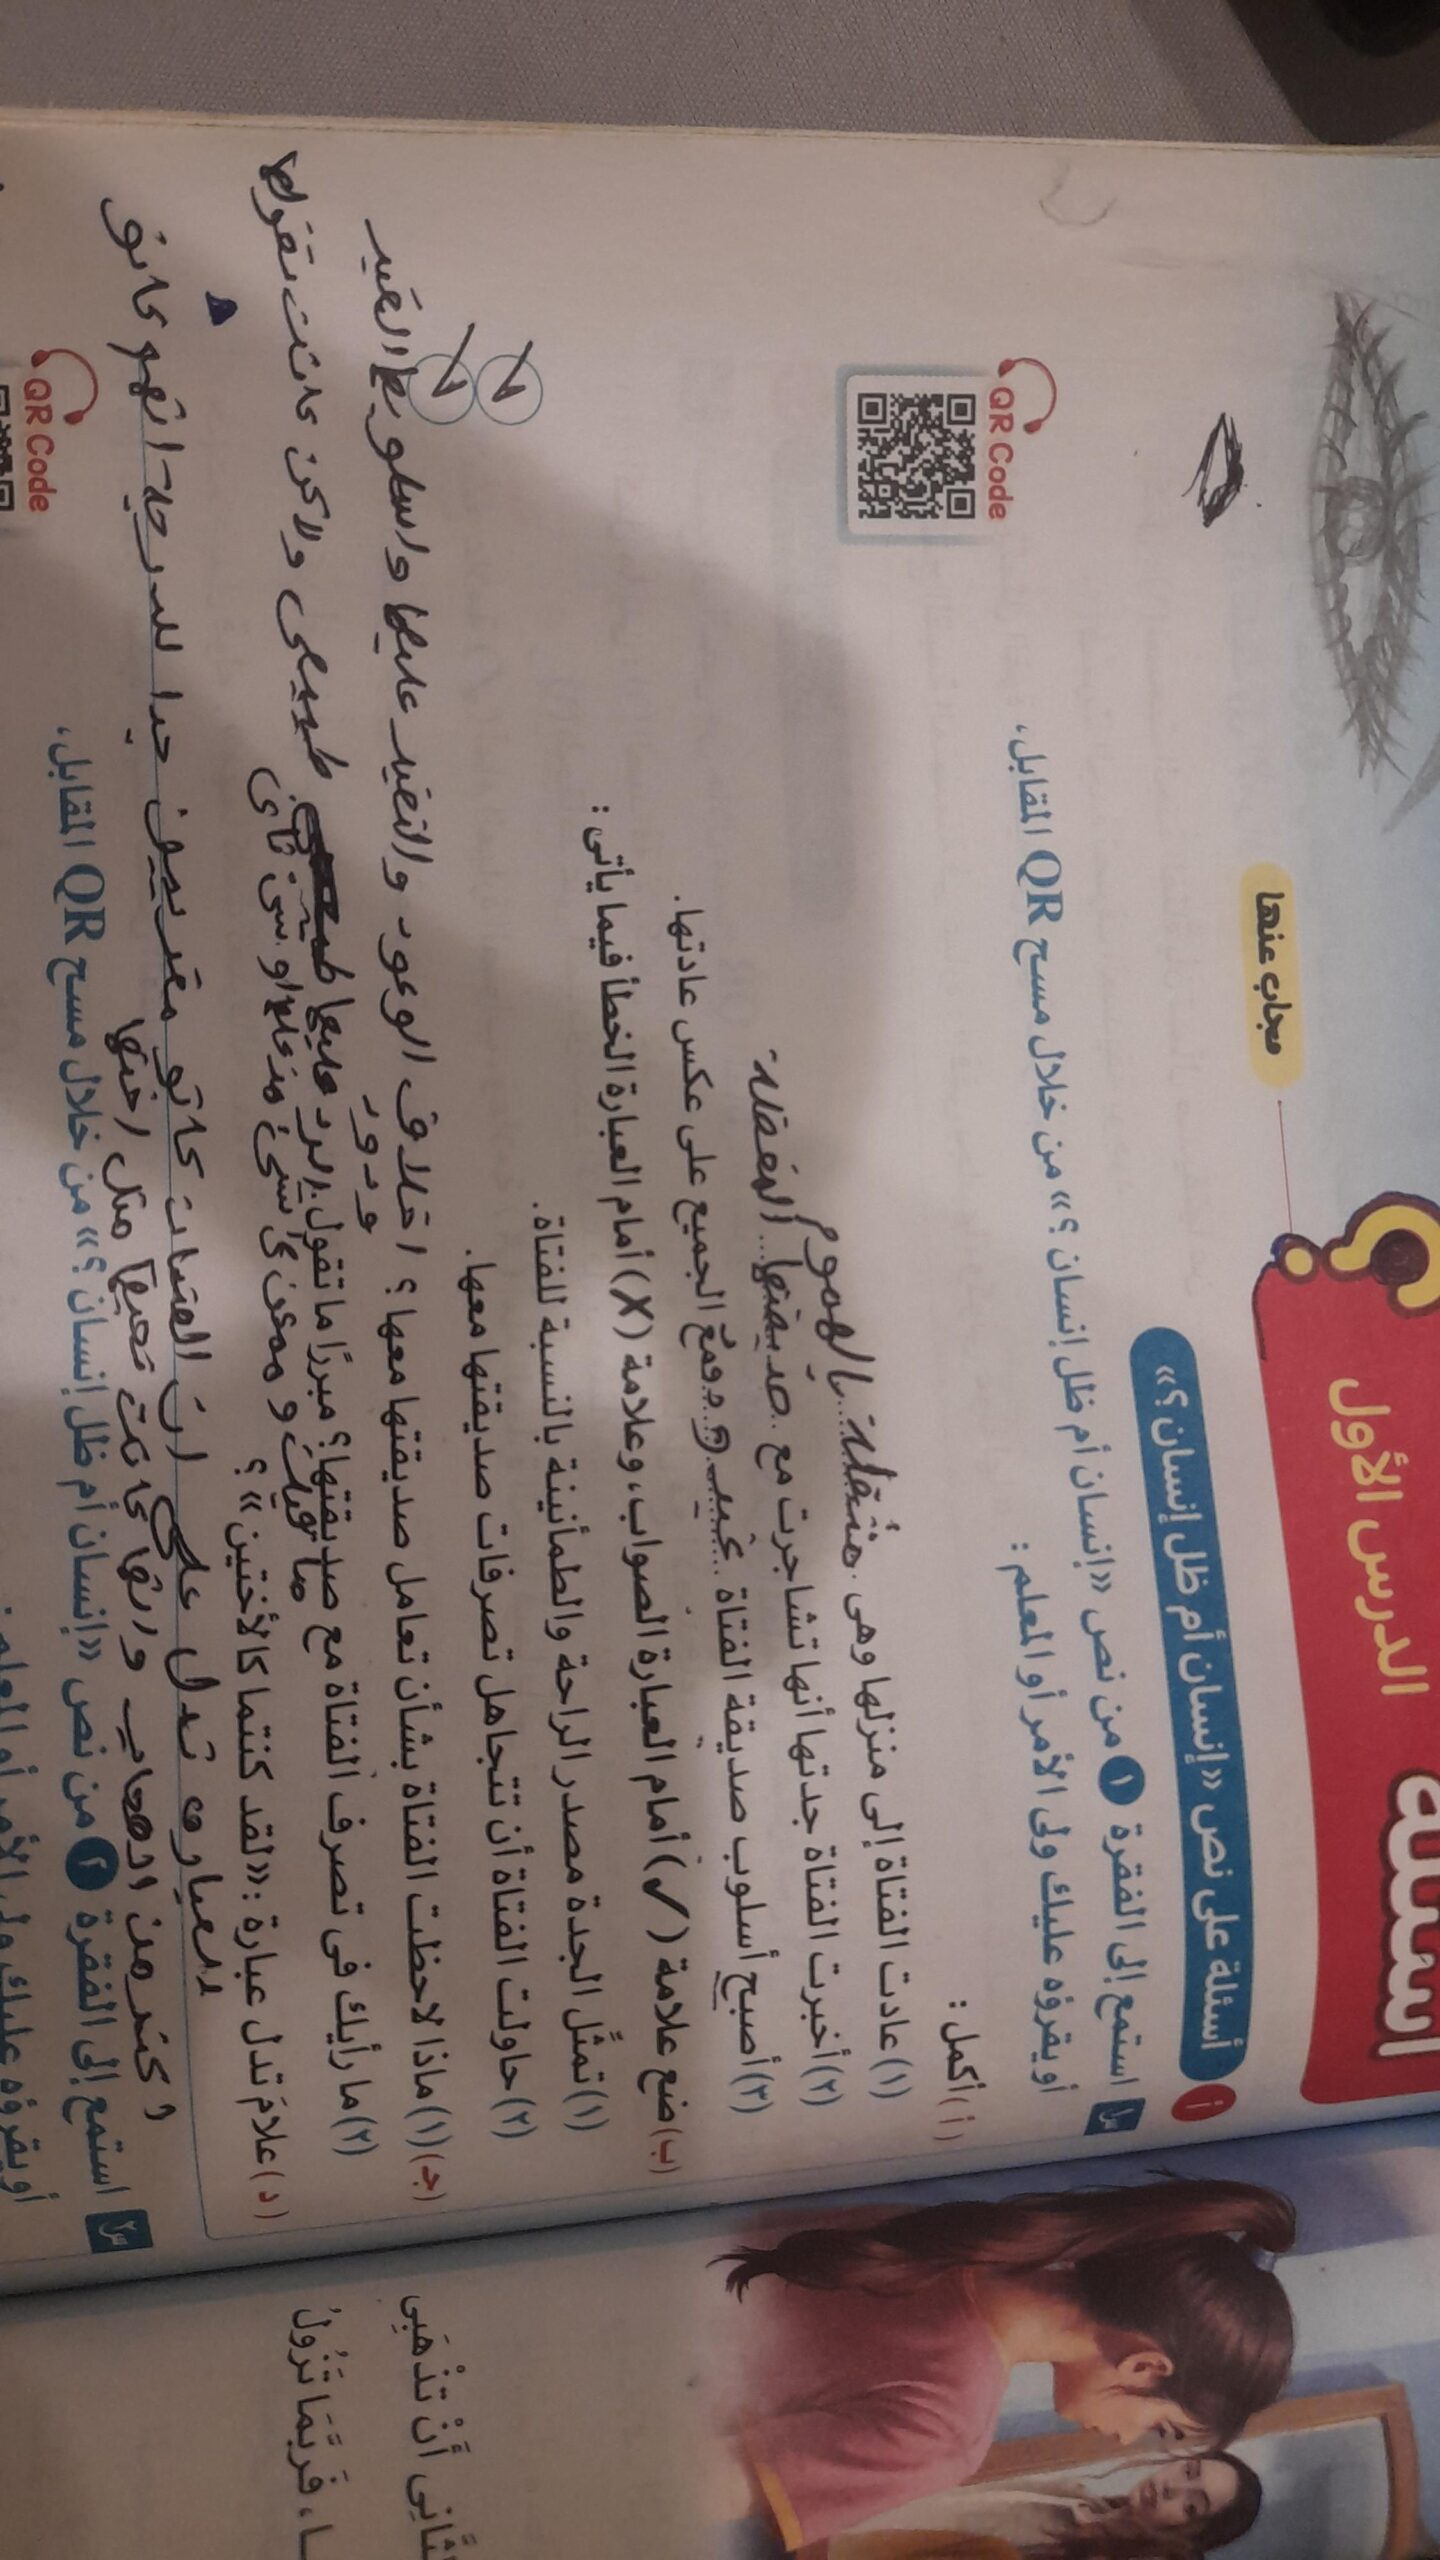 أسئلة
الدرس الأول
مجاب عنها
أ أسئلة على نص «إنسان أم ظل إنسان؟»
س١ استمع إلى الفقرة ١ من نص «إنسان أم ظل إنسان؟» من خلال مسح QR المقابل،
أو يقرؤه عليك ولى الأمر أو المعلم:
QR Code
(أ) أكمل:
(١) عادت الفتاة إلى منزلها وهى مثقلة بالهموم
(٢) أخبرت الفتاة جدتها أنها تشاجرت مع صديقتها المفضلة
(٣) أصبح أسلوب صديقة الفتاة مع الجميع على عكس عادتها.
(ب) ضع علامة (✓) أمام العبارة الصواب، وعلامة (X) أمام العبارة الخطأ فيما يأتى:
(١) تمثل الجدة مصدر الراحة والطمأنينة بالنسبة للفتاة. ✓
(٢) حاولت الفتاة أن تتجاهل تصرفات صديقتها معها. ✓
(جـ) (١) ماذا لاحظت الفتاة بشأن تعامل صديقتها معها؟ اخلاف الوعود والتغير عليها واسلوبها الغير
ودود
(٢) ما رأيك فى تصرف الفتاة مع صديقتها؟ مبررًا ما تقول. الرد عليها طبيعى ولاكن كانت تقولها
(د) علام تدل عبارة: «لقد كنتما كالأختين»؟
العبارة تدل على ان الفتيات كانو مقربين جدا لدرجة انهو كانو
اكتر من الاصحاب وانها كانت تعتبرها مثل اختها
س٢ استمع إلى الفقرة ٢ من نص «إنسان أم ظل إنسان؟» من خلال مسح QR المقابل،
أو يقرؤه عليك ولى الأمر أو المعلم:
QR Code
أَنْ تَذْهَبِى
فَرُبَّمَا تَزُولُ